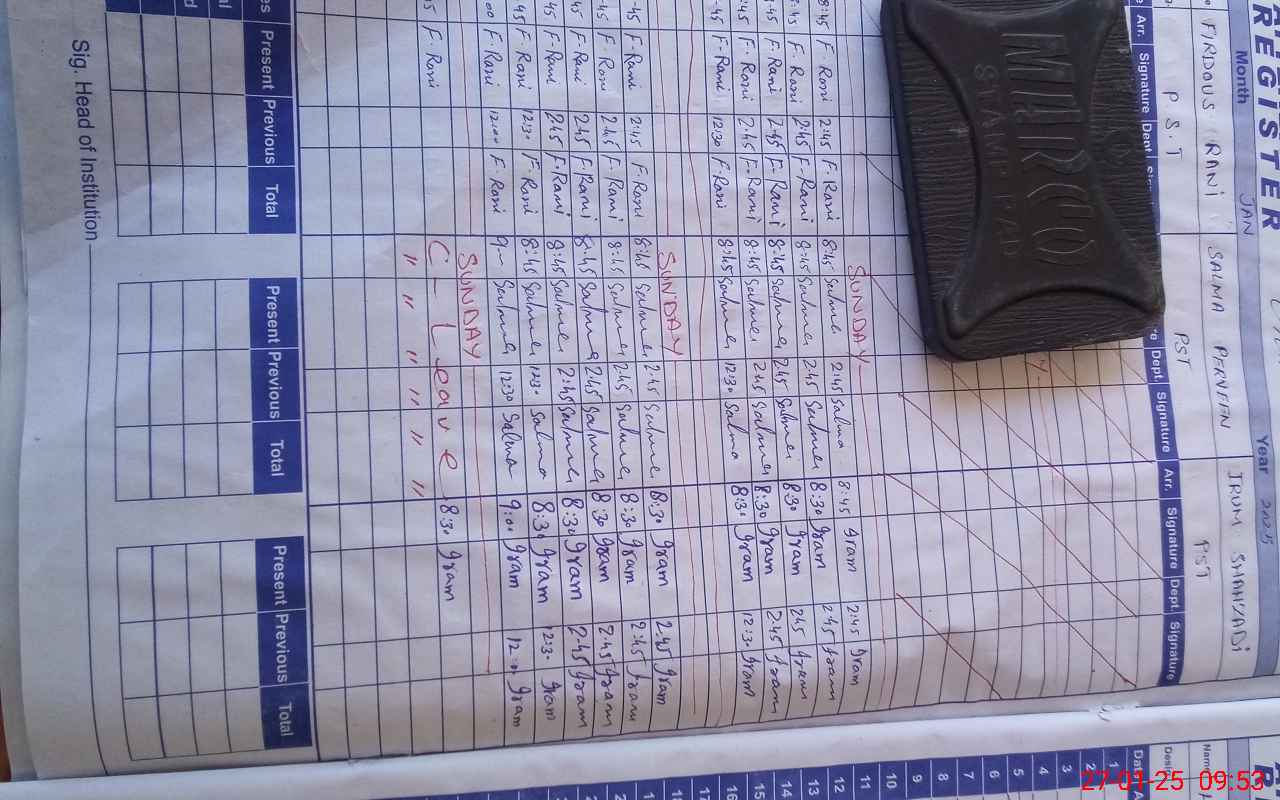 REGISTER
Month JAN Year 2025
FIRDOUS RANI SALMA PERVEEN IRUM SHAHZADI
P.S.T PST PST
Arr. Signature Dept. Dept. Signature Arr. Signature Dept. Signature
MARUO
STAMP PAD
SUNDAY
8:45 F. Rani 2:45 F. Rani 8:45 Salma 2:45 Salma 8:45 Iram 2:45 Iram
8:45 F. Rani 2:45 F. Rani 8:45 Salma 2:45 Salma 8:30 Iram 2:45 Iram
8:45 F. Rani 2:45 F. Rani 8:45 Salma 2:45 Salma 8:30 Iram 2:45 Iram
8:45 F. Rani 2:45 F. Rani 8:45 Salma 2:45 Salma 8:30 Iram 2:45 Iram
:45 F. Rani 12:30 F. Rani 8:45 Salma 12:30 Salma 8:30 Iram 12:30 Iram
SUNDAY
:45 F. Rani 2:45 F. Rani 8:45 Salma 2:45 Salma 8:30 Iram 2:45 Iram
:45 F. Rani 2:45 F. Rani 8:45 Salma 2:45 Salma 8:30 Iram 2:45 Iram
:45 F. Rani 2:45 F. Rani 8:45 Salma 2:45 Salma 8:30 Iram 2:45 Iram
45 F. Rani 2:45 F. Rani 8:45 Salma 2:45 Salma 8:30 Iram 2:45 Iram
45 F. Rani 12:30 F. Rani 8:45 Salma 12:30 Salma 8:30 Iram 12:30 Iram
00 F. Rani 12:00 F. Rani 9 Salma 12:30 Salma 9:00 Iram 12:00 Iram
SUNDAY
45 F. Rani C- Leave 8:30 Iram
" " " " " "
Present Previous Total Present Previous Total Present Previous Total
Sig. Head of Institution
1
2
3
4
5
6
7
8
9
10
11
12
13
14
15
16
17
27-01-25 09:53